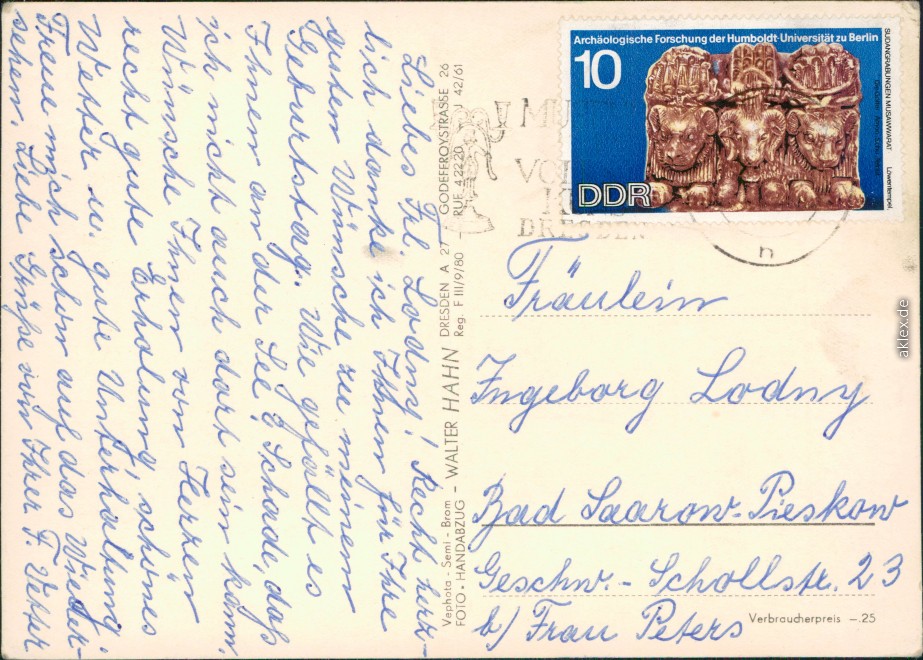 Liebes Frl. Lodny! Recht herz-
lich danke ich Ihnen für Ihre
guten Wünsche zu meinem
Geburtstag. Wie gefällt es
Ihnen an der See? Schade, daß
ich nicht auch dort sein kann.
Wünsche Ihnen von Herzen
recht gute Erholung, schönes
Wetter u. gute Unterhaltung.
Freue mich schon auf das Wieder-
sehen. Liebe Grüße von Ihrer F. Vetter
Vephota - Semi - Bram
FOTO • HANDABZUG – WALTER HAHN DRESDEN A 27 – GODEFFROYSTRASSE 26
Reg. F III/9/80 – RUF 4 22 20 J 42/61
Archäologische Forschung der Humboldt-Universität zu Berlin
10
DDR
SUDANGRABUNGEN MUSAWWARAT
Löwentempel
DRESDEN
n
Fräulein
Ingeborg Lodny
Bad Saarow-Pieskow
Geschw.-Schollstr. 23
b/ Frau Peters
Verbraucherpreis –.25
aklex.de